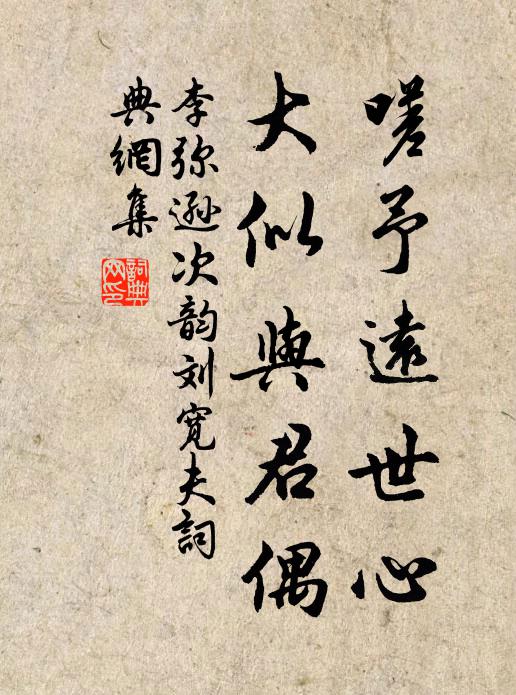 嗟予遠世心
大似與君偶
李弥遜次韵刘寛夫詞
典網集
詞典
网印